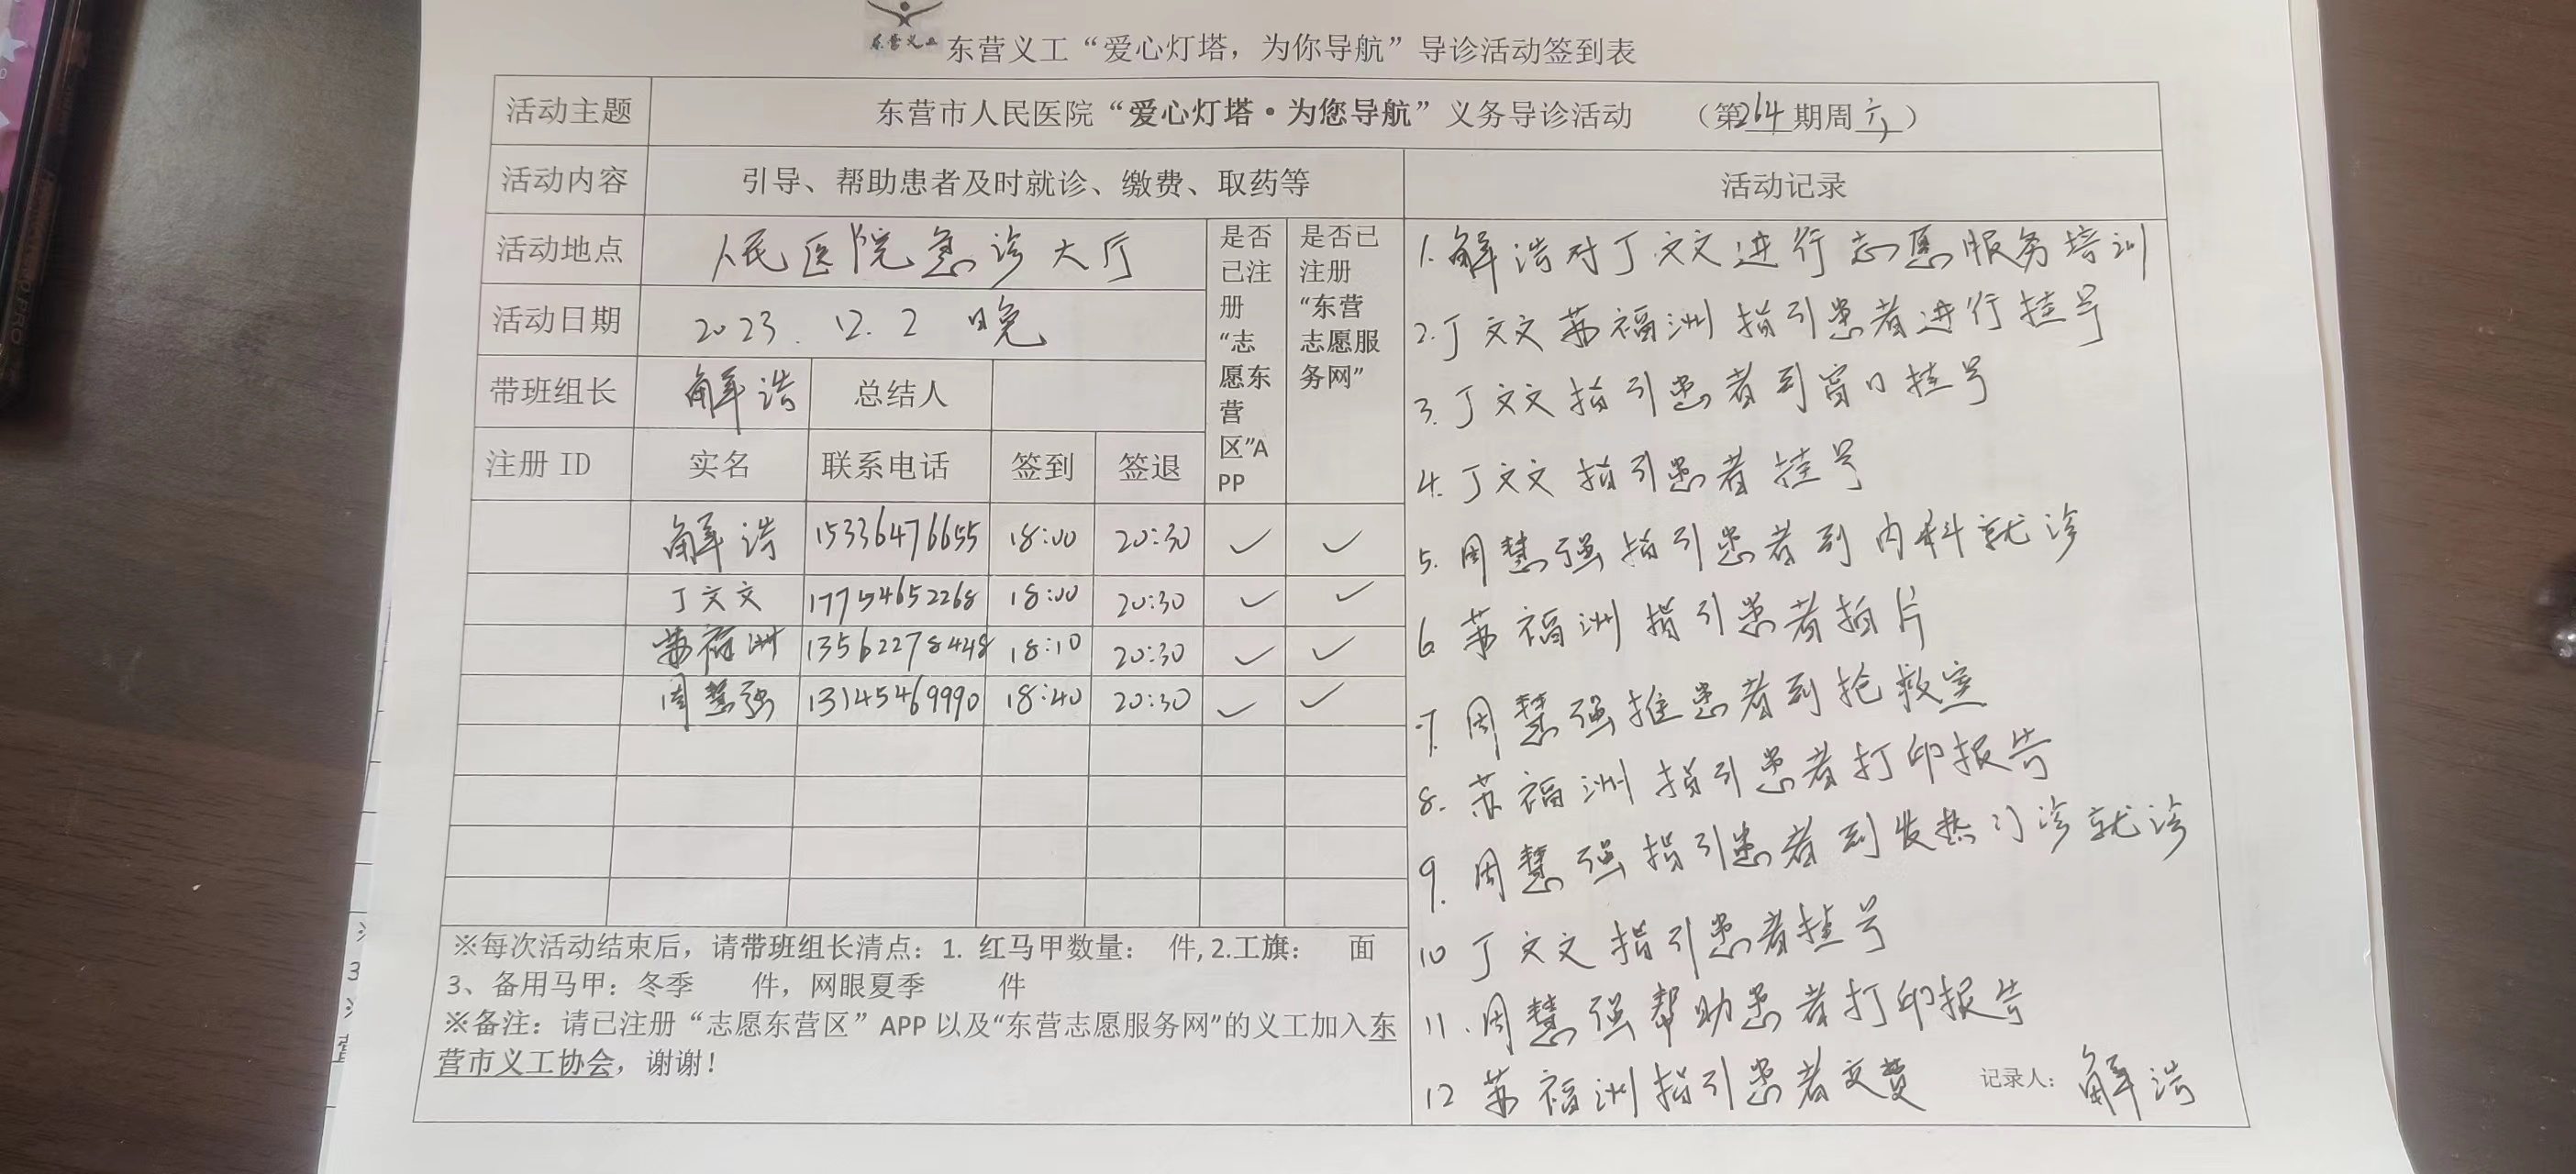 东营义工
东营义工“爱心灯塔，为你导航”导诊活动签到表
活动主题 东营市人民医院“爱心灯塔·为您导航”义务导诊活动 （第264期周六）
活动内容 引导、帮助患者及时就诊、缴费、取药等 活动记录
活动地点 人民医院急诊大厅
活动日期 2023.12.2 晚
带班组长 解浩 总结人
是否
已注
册
“志
愿东
营
区”A
PP
是否已
注册
“东营
志愿服
务网”
注册 ID 实名 联系电话 签到 签退
解浩 15336476655 18:00 20:30 ✓ ✓
丁文文 17754652268 18:00 20:30 ✓ ✓
苏福洲 13562278448 18:10 20:30 ✓ ✓
周慧强 13145469990 18:40 20:30 ✓ ✓
※每次活动结束后，请带班组长清点：1. 红马甲数量： 件, 2.工旗： 面
3、备用马甲：冬季 件，网眼夏季 件
※备注：请已注册“志愿东营区”APP 以及“东营志愿服务网”的义工加入东
营市义工协会，谢谢！
1. 解浩对丁文文进行志愿服务培训
2. 丁文文苏福洲指引患者进行挂号
3. 丁文文指引患者到窗口挂号
4. 丁文文指引患者挂号
5. 周慧强指引患者到内科就诊
6 苏福洲指引患者拍片
7. 周慧强推患者到抢救室
8. 苏福洲指引患者打印报告
9. 周慧强指引患者到发热门诊就诊
10 丁文文指引患者挂号
11. 周慧强帮助患者打印报告
12 苏福洲指引患者交费
记录人：解浩